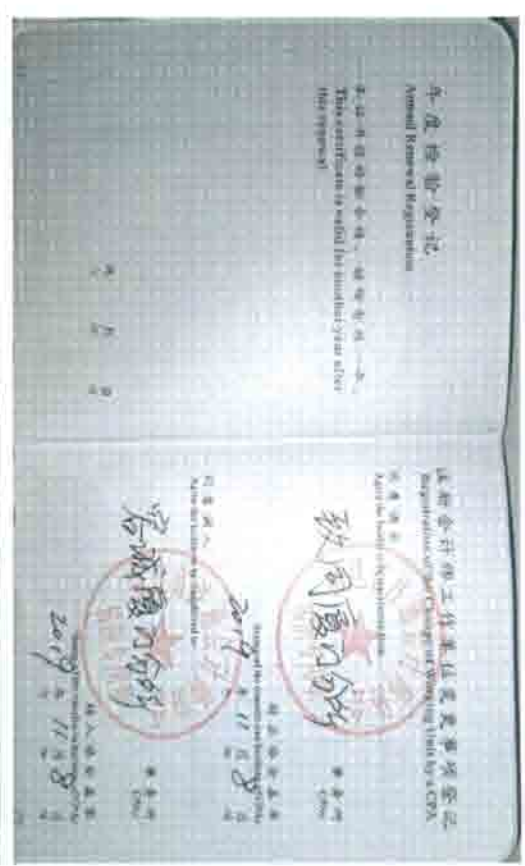 年度检验登记
Annual Renewal Registration
本证书经检验合格，继续有效一年。
This certificate is valid for another year after
this renewal.
年 月 日
注册会计师工作单位变更事项登记
Registration of the Change of Working Unit by a CPA
同意调出
Agree the holder to be transferred from
致同厦门分所
事务所
CPAs
转出协会盖章
Stamp of the transfer-out Institute of CPAs
2019 年 11 月 8 日
同意调入
Agree the holder to be transferred to
容诚厦门分所
事务所
CPAs
转入协会盖章
Stamp of the transfer-in Institute of CPAs
2019 年 11 月 8 日